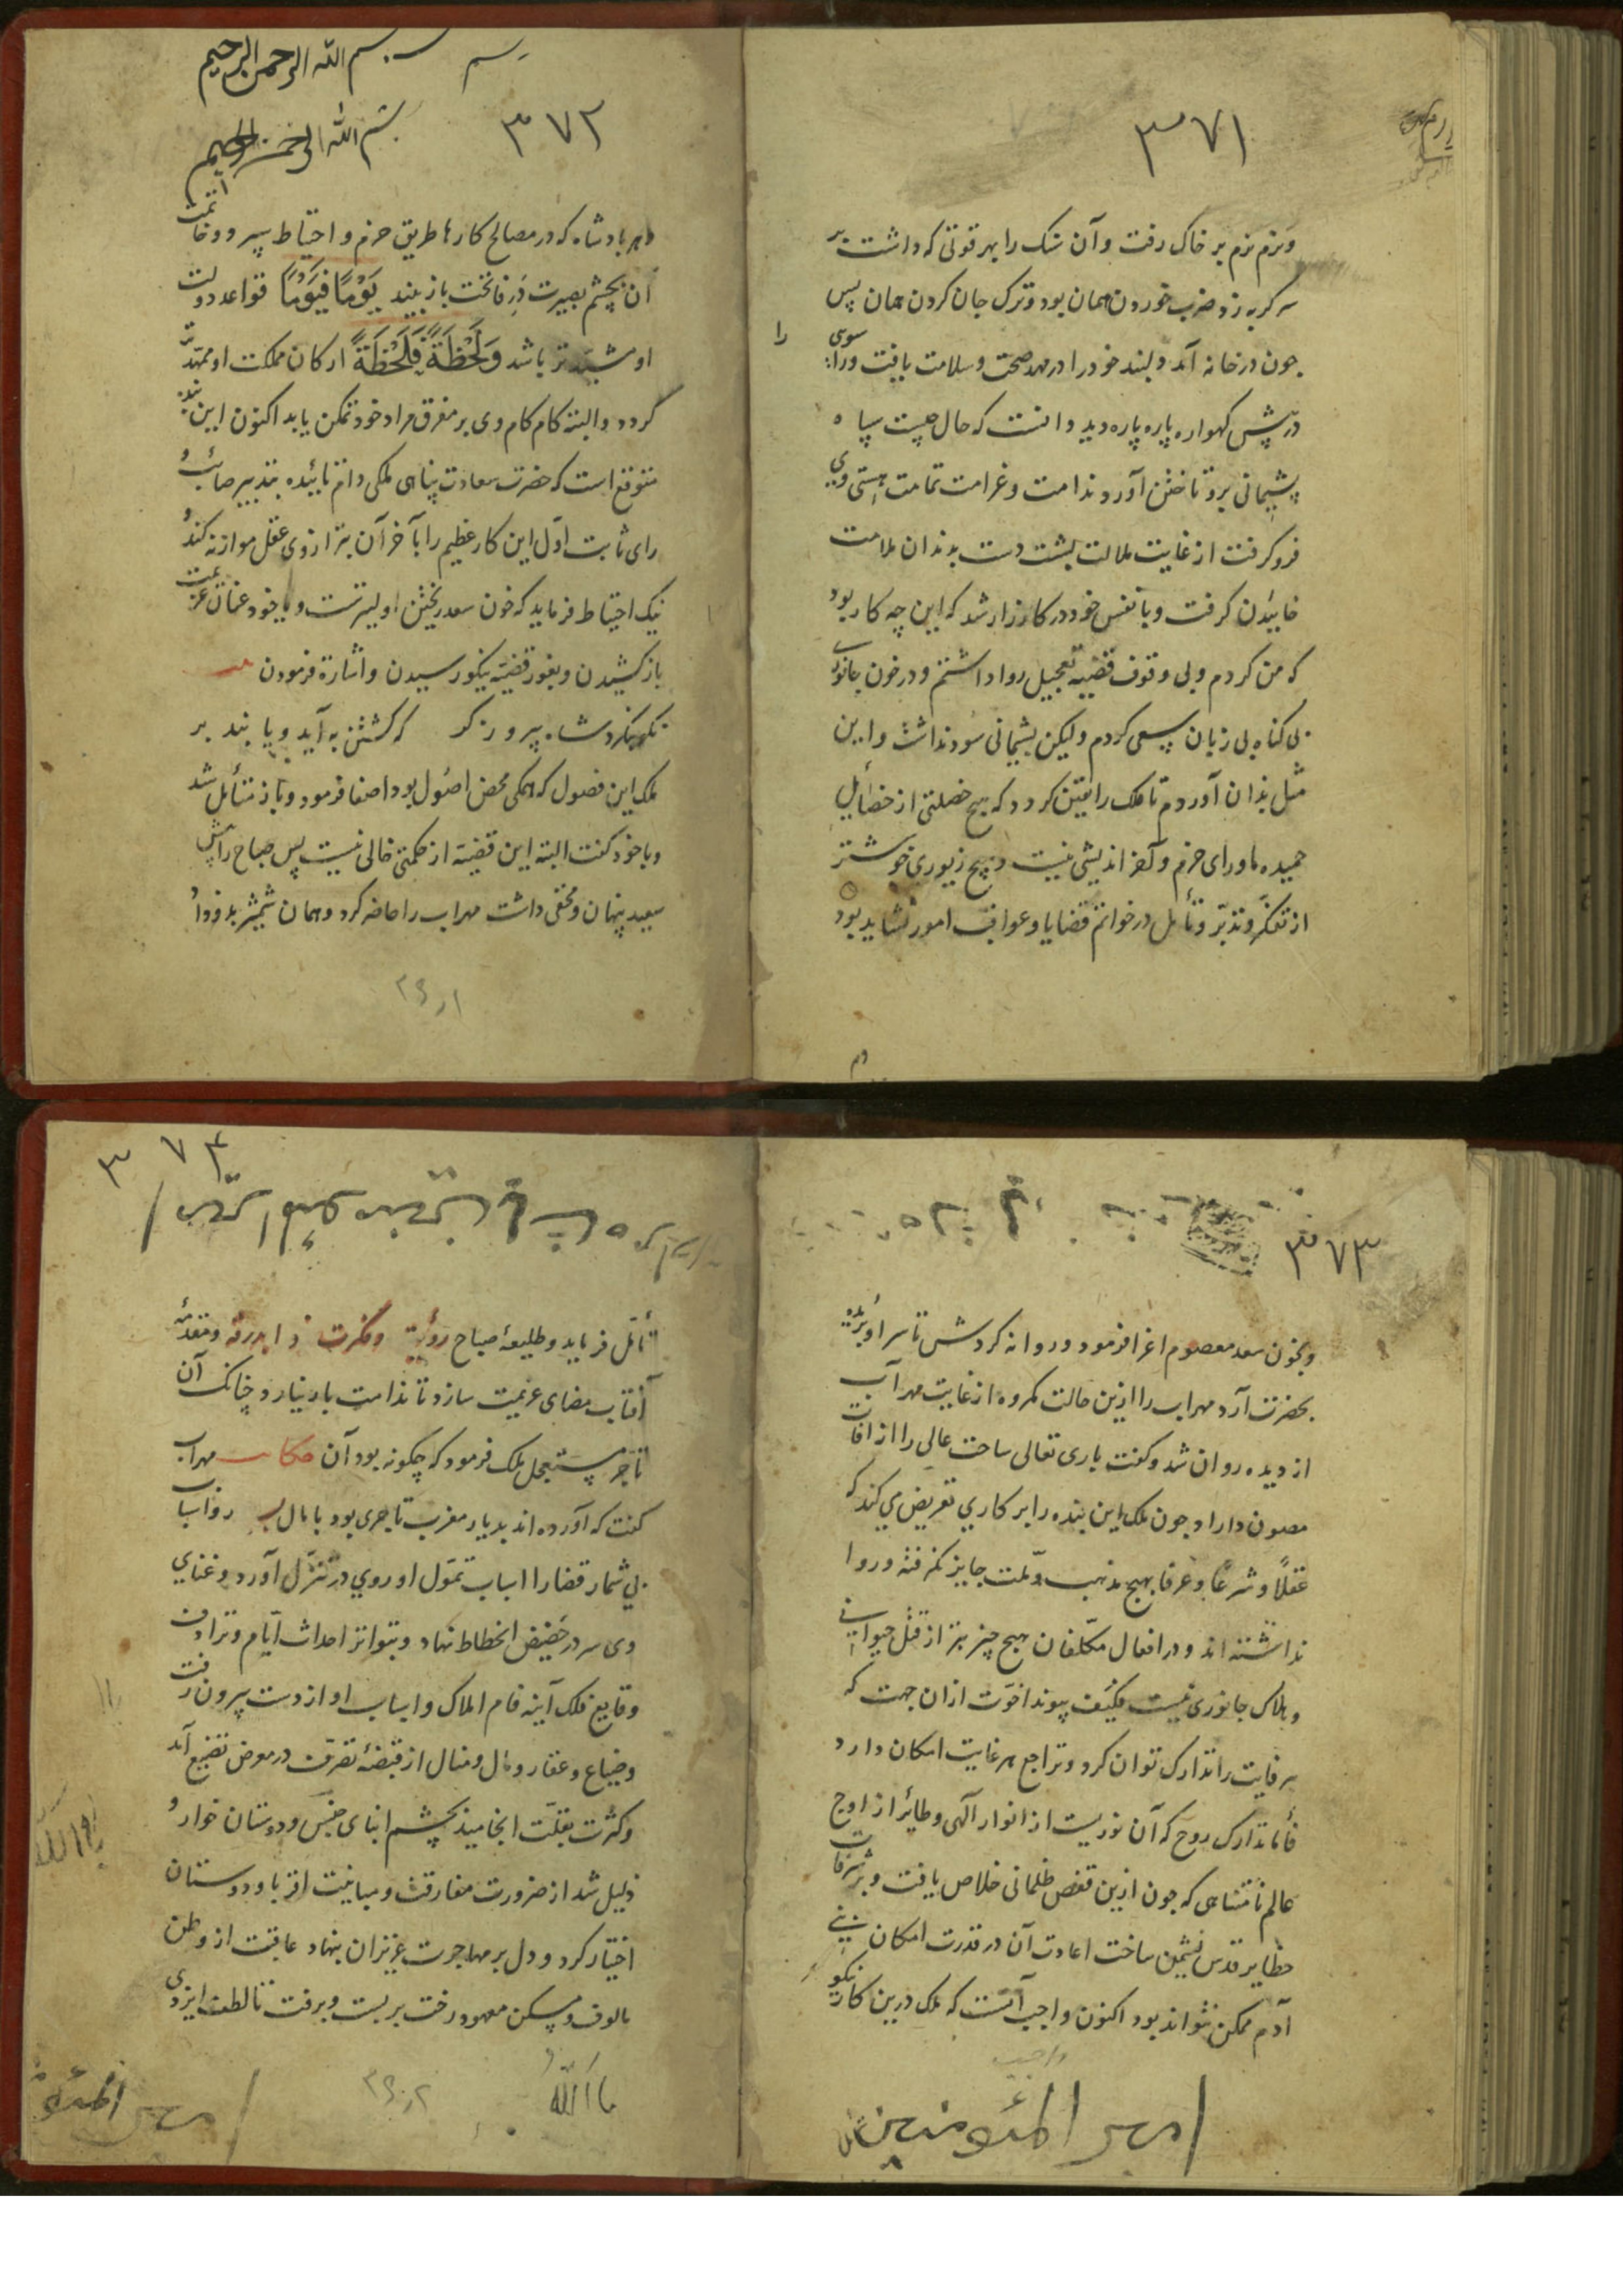 ۳۷۱
و نرم نرم بر خاک رفت و آن سنک را بهر قوتی که داشت بر
سر کربه زد ضرب خوردن همان بود و ترک جان کردن همان پس
چون در خانه آمد دلبند خود را در مهد صحت و سلامت یافت و را سوی
در پیش کهواره پاره پاره دید دانست که حال چیست سپاه
پشیمانی برو تاختن آورد و ندامت و غرامت تمامت هستی وی
فرو کرفت از غایت ملالت پشت دست بدندان ملامت
خاییدن کرفت و با نفس خود در کارزار شد که این چه کار بود
که من کردم و بی وقوف قضیه تعجیل روا داشتم و در خون جانوری
بی کناه بی زبان سعی کردم ولیکن پشیمانی سود نداشت و این
مثل بذان آوردم تا ملک را یقین کردد که هیچ خصلتی از خصایل
حمیده ماورای حزم و آخر اندیشی نیست و هیچ زیوری خوشتر
از تفکر و تدبّر و تأمل در خواتم قضایا و عواقب امور نشاید بود
بسم
بسم الله الرحمن الرحیم
۳۷۲
بسم الله الرحمن الرحیم
هر پادشاه که در مصالح کارها طریق حزم و احتیاط سپرد و خاتمت
آن بچشم بصیرت در فاتحت باز بیند یَوْمًا فَیَوْمًا قواعد دولت
او مشیّد تر باشد وَلَحْظَةً فَلَحْظَةً ارکان مملکت او ممهّد تر
کردد و البته کام کام وی بر مفرق مراد خود تمکن یابد اکنون این بنده
متوقع است که حضرت سعادت پناهی ملکی دام تاییده بتدبیر صائب و
رای ثابت اوّل این کار عظیم را بآخر آن بترازوی عقل موازنه کند و
نیک احتیاط فرماید که خون سعد ریختن اولیترست و یا خود عنان عزیمت
باز کشیدن و بغور قضیّه نیکو رسیدن و اشارة فرمودن
نکو بنکرد شاه پیروزکر که کشتن به آید و یا بند بر
ملک این فصول که همکی محض اصول بود اصغا فرمود و باز متأمل شد
و با خود کفت البته این قضیّه از حکمتی خالی نیست پس صباح را پیش
سعید پنهان و مخفی داشت مهراب را حاضر کرد و همان شمشیر بدو داد
۳۷۳
و بخون سعد معصوم اغرا فرمود و روانه کردش تا سر او بریده
بحضرت آرد مهراب را ازین حالت مکروه از غایت مهر آب
از دیده روان شد و کفت باری تعالی ساحت عالی را از آفات
مصون داراد چون ملک این بنده را بر کاری تعریض می کند که
عقلاً و شرعًا و عرفا بهیچ مذهب و ملّت جایز نکرفته و روا
نداشته اند و در افعال مکلّفان هیچ چیز بتر از قتل حیوانی
و هلاک جانوری نیست فکیف پیوند اخوّت ازان جهت که
هر فایت را تدارک توان کرد و تراجع هر غایت امکان دارد
فأما تدارک روح که آن نوریست از انوار الهی و طائر از اوج
عالم نامتناهی که چون ازین قفص ظلمانی خلاص یافت و بر شرفات
حظایر قدس نشیمن ساخت اعادت آن در قدرت امکان بنی
آدم ممکن نتواند بود اکنون واجب آنست که ملک درین کار نیکو
واجب
امیر المؤمنین
۳۷۴
تأمّل فرماید و طلیعهٔ صباح رویّت و فکرت را بدرقه و مقدمهٔ
آفتاب مضای عزیمت سازد تا ندامت بار نیارد چنانک آن
تاجر مستعجل ملک فرمود که چکونه بود آن حکایت مهراب
کفت که آورده اند بدیار مغرب تاجری بود با مال و اسباب
بی شمار قضا را اسباب تموّل او روی در تنزّل آورد و غنای
وی سر در حضیض انحطاط نهاد و بتواتر احداث ایّام و ترادف
وقایع فلک آینه فام املاک و اسباب او از دست بیرون رفت
و ضیاع و عقار و مال و منال از قبضهٔ تصرّف در معرض تضییع آمد
و کثرت بقلّت انجامید بچشم ابنای جنس و دوستان خوار و
ذلیل شد از ضرورت مفارقت و مباینت اقربا و دوستان
اختیار کرد و دل بر مهاجرت عزیزان بنهاد عاقبت از وطن
مالوف و مسکن معهود رخت بربست و برفت تا لطف ایزدی
یا الله
امیر المؤ